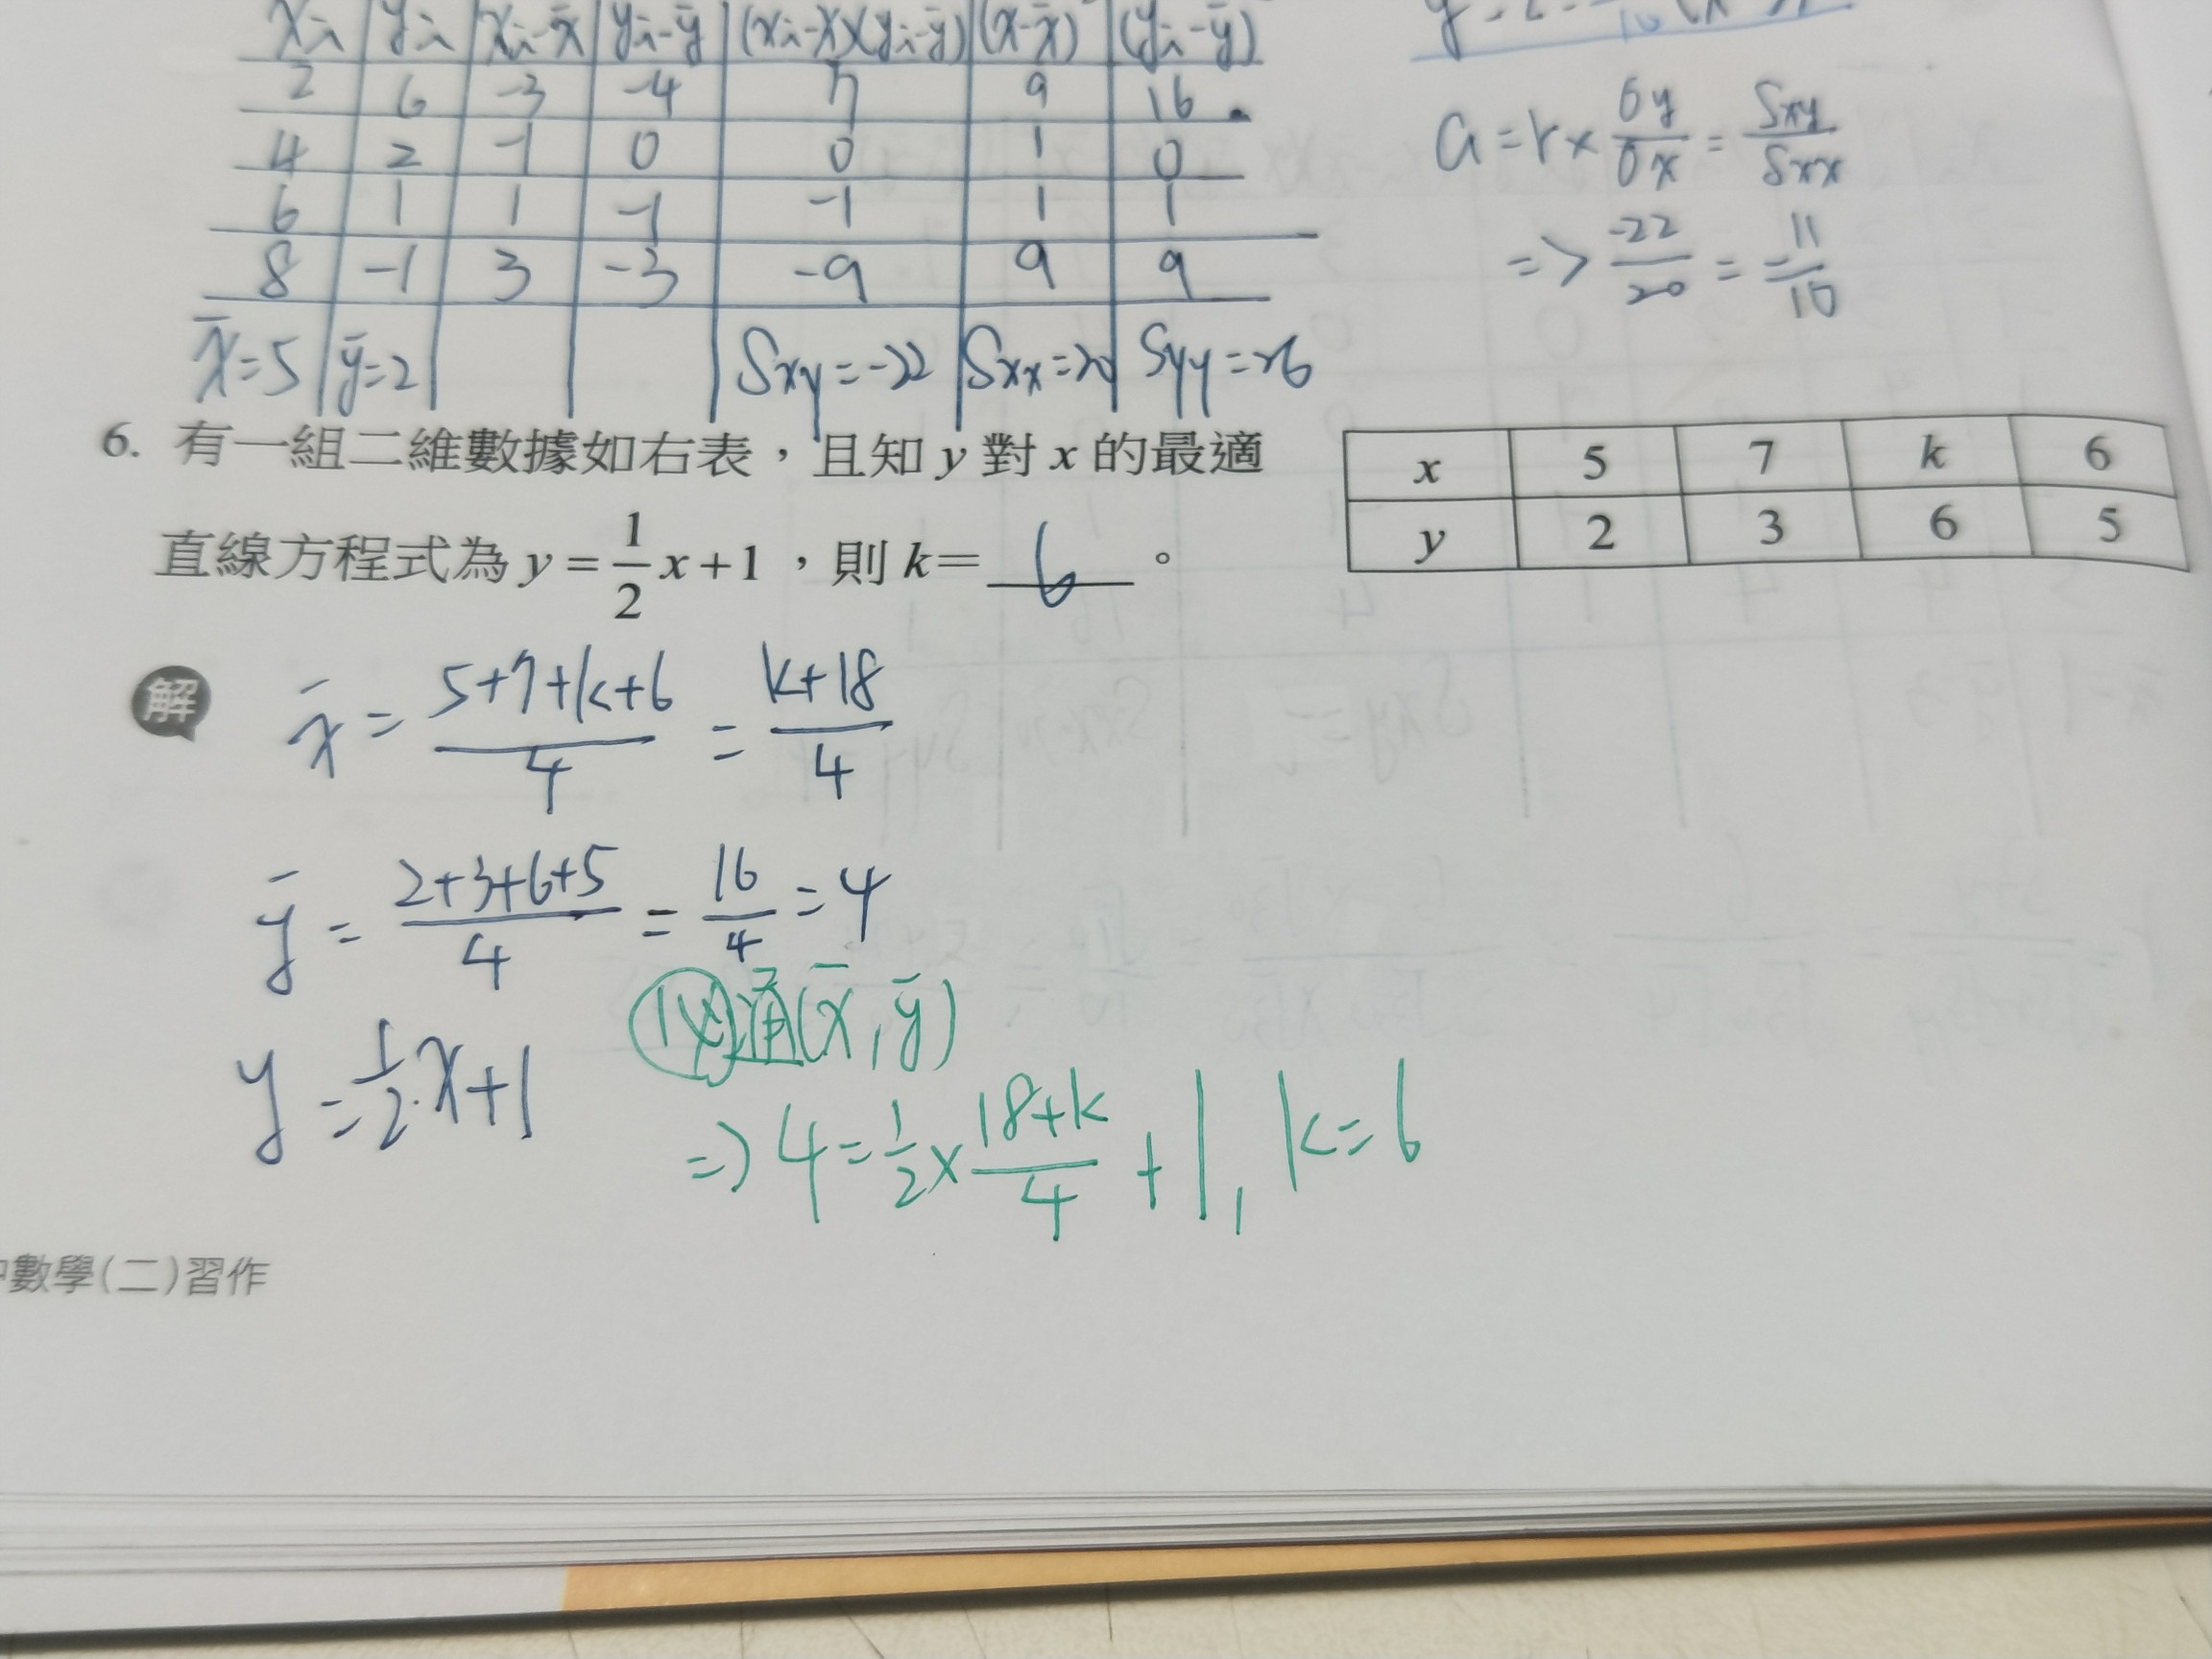 xᵢ yᵢ xᵢ-x̄ yᵢ-ȳ (xᵢ-x̄)(yᵢ-ȳ) (x-x̄) (yᵢ-ȳ)
2 6 -3 -4 9 16
4 2 -1 0 0 1 0
6 1 1 -1 -1 1 1
8 -1 3 -3 -9 9 9
x̄=5 ȳ=2 Sxy=-22 Sxx=20 Syy=26
a=r×σy/σx=Sxy/Sxx
=> -22/20=-11/10
6. 有一組二維數據如右表，且知 y 對 x 的最適
直線方程式為 y=1/2x+1，則 k=6。
x 5 7 k 6
y 2 3 6 5
解
x̄=(5+7+k+6)/4=(k+18)/4
ȳ=(2+3+6+5)/4=16/4=4
y=1/2x+1
必通(x̄,ȳ)
=>4=1/2×(18+k)/4+1, k=6
數學(二)習作